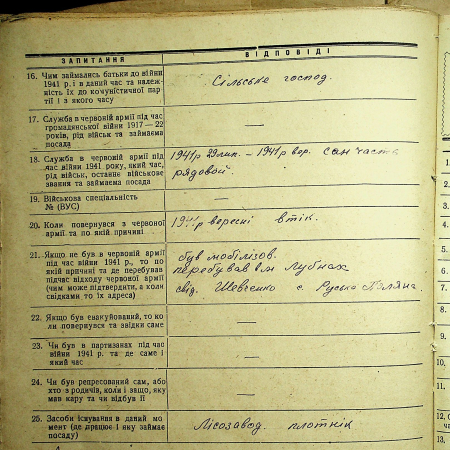 ЗАПИТАННЯ
ВІДПОВІДІ
16. Чим займались батьки до війни
1941 р. і в даний час та належ-
ність їх до комуністичної пар-
тії і з якого часу
Сільське господ.
17. Служба в червоній армії під час
громадянської війни 1917—22
років, рід військ та займаєма
посада
—
18. Служба в червоній армії під
час війни 1941 року, який час,
рід військ, останнє військове
звання та займаєма посада
1941р 29 лип. – 1941 р вер. сан часть
рядовой.
19. Військова спеціяльність
№ (ВУС)
—
20. Коли повернувся з червоної
армії та по якій причині
1941р вересні втік.
21. Якщо не був в червоній армії
під час війни 1941 р., то по
якій причині та де перебував
підчас відходу червоної армії
(чим може підтвердити, а коли
свідками то їх адреса)
був мобілізов.
перебував в м Лубнах
свід. Шевченко с. Руська Поляна
22. Якщо був евакуйований, то ко
ли повернувся та звідки саме
—
23. Чи був в партизанах під час
війни 1941 р. та де саме і
який час
—
24. Чи був репресований сам, або
хто з родичів, коли і защо, яку
мав кару та чи відбув її
—
25. Засоби існування в даний мо
мент (де працює і яку займає
посаду)
Лісозавод. плотнік
7.
8.
9.
10.
11.
12.
13.